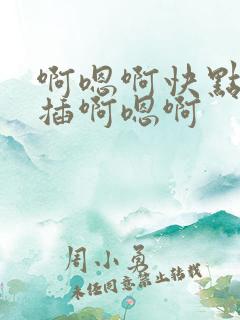 啊嗯啊快點
插啊嗯啊
周小勇
未经同意禁止转载